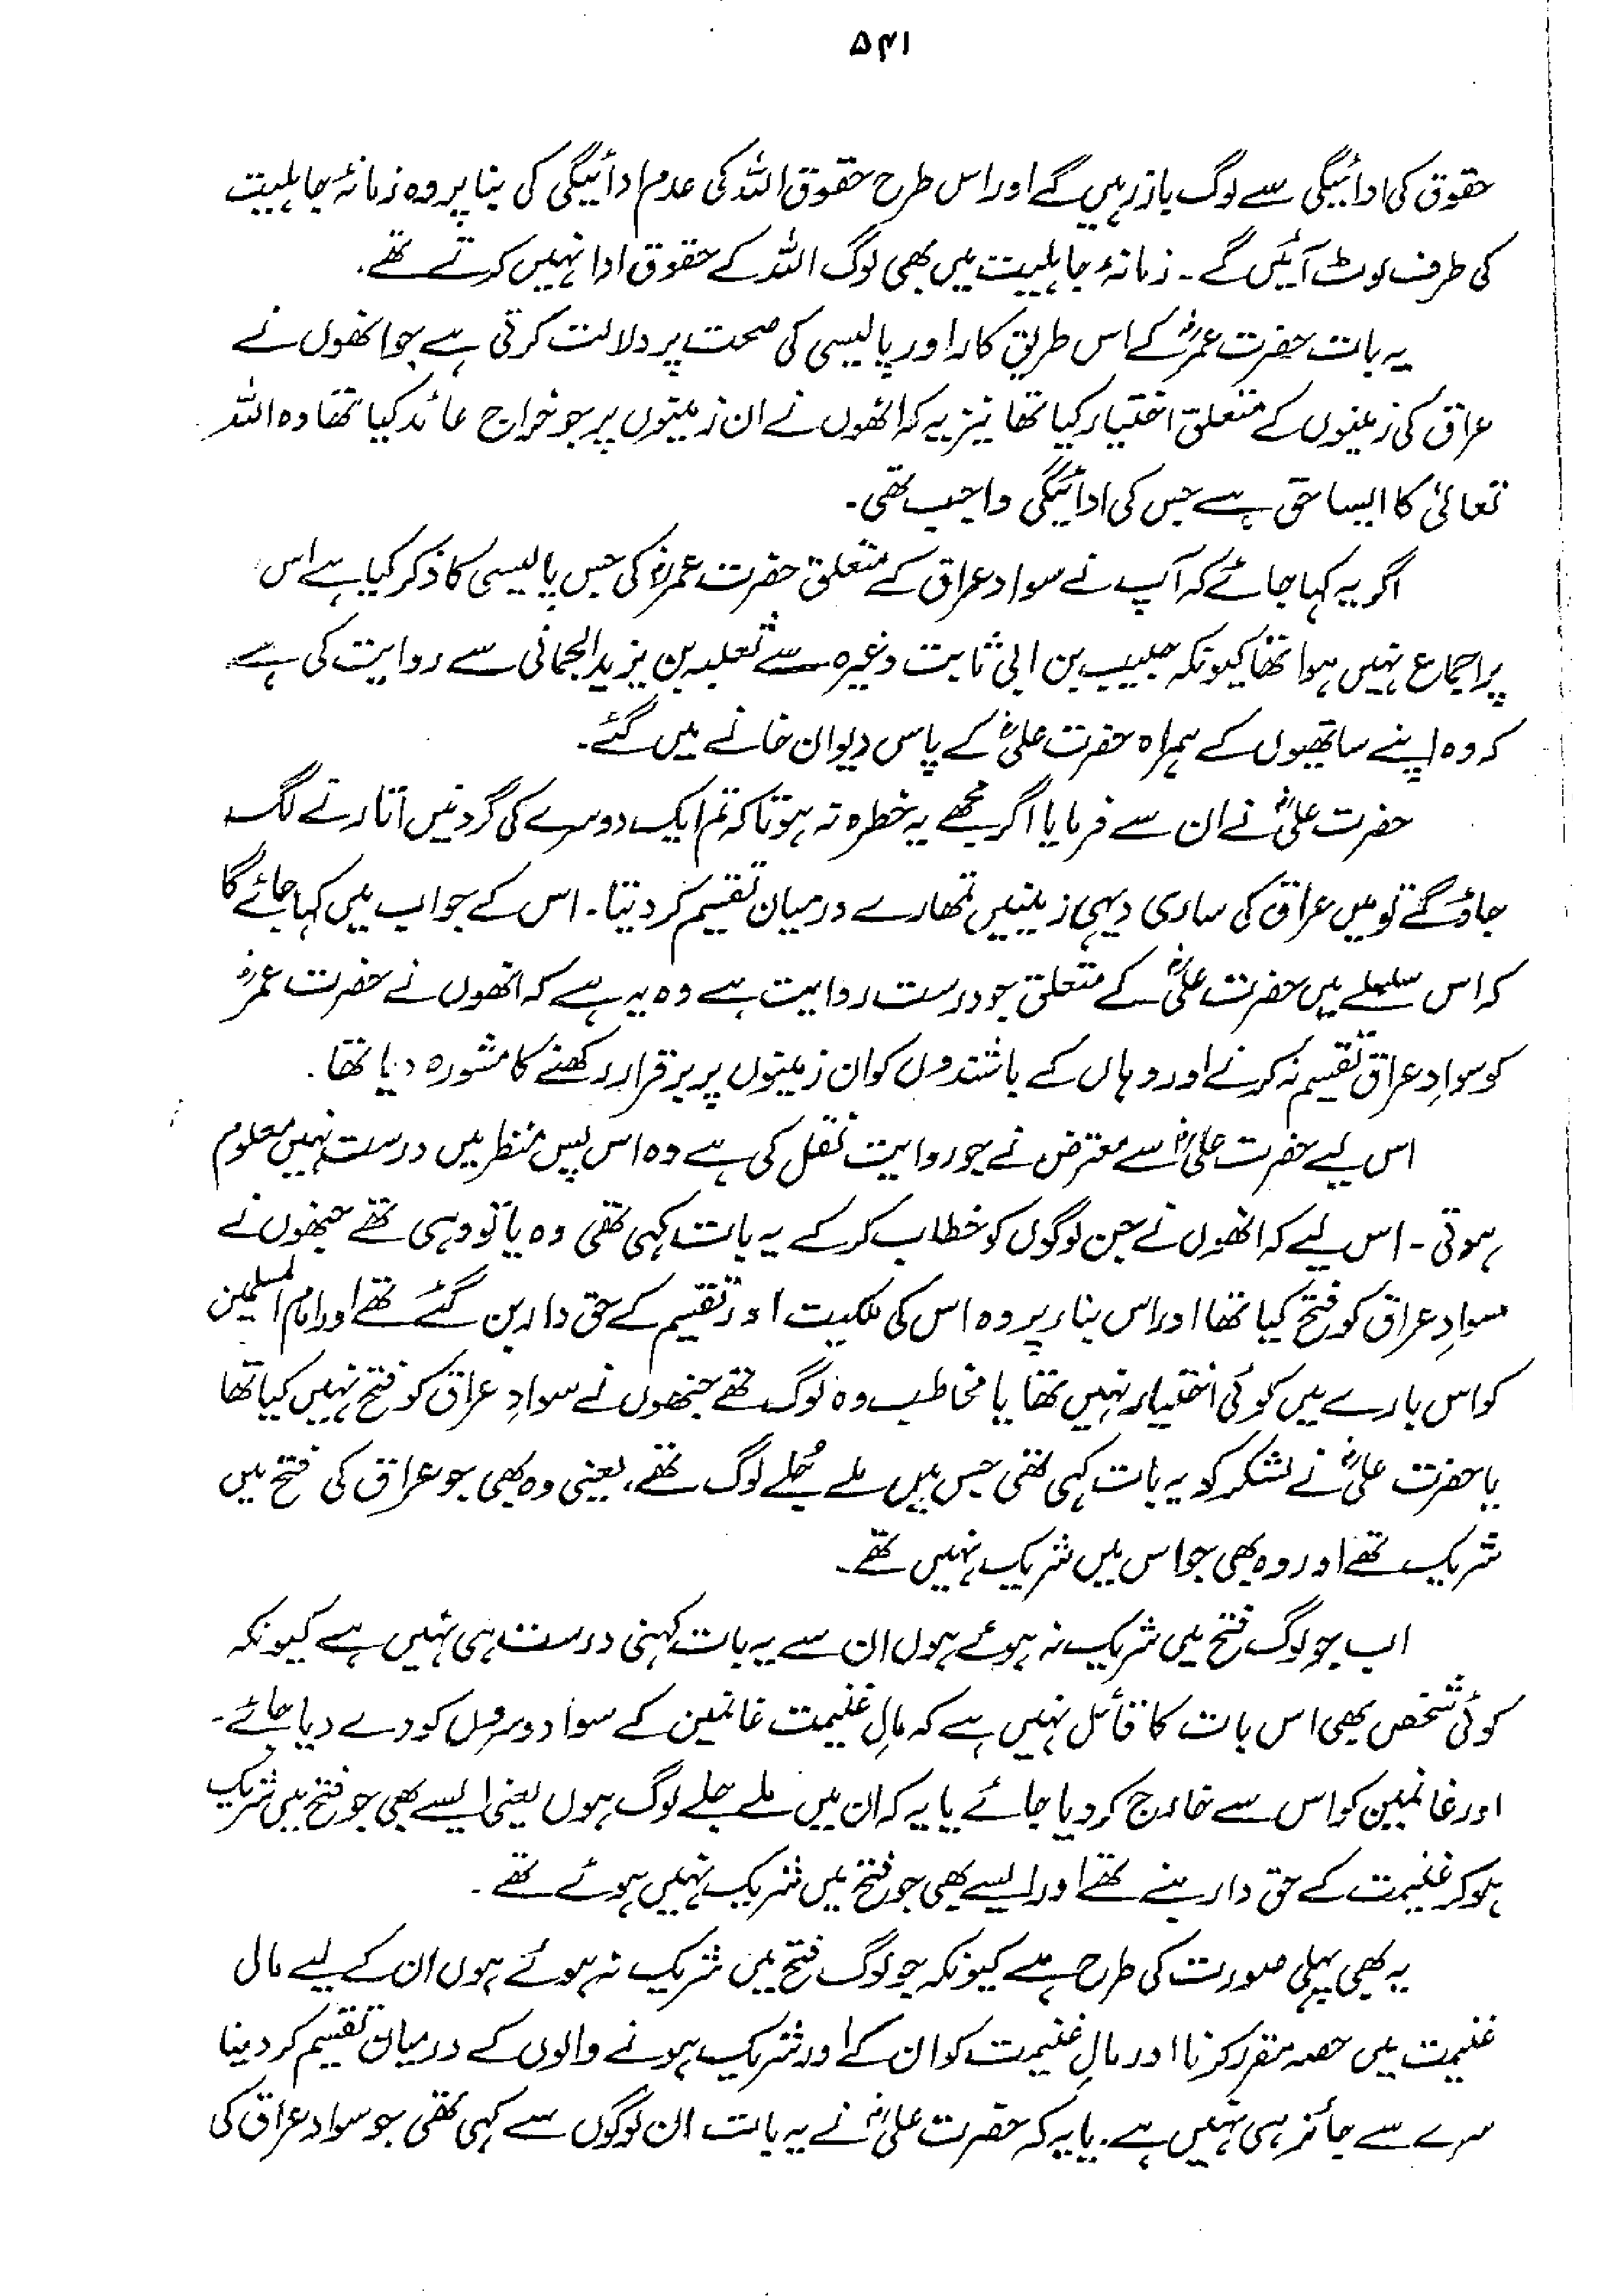 ۵۴۱
حقوق کی ادائیگی سے لوگ باز رہیں گے اور اس طرح حقوق اللہ کی عدم ادائیگی کی بنا پر وہ زمانۂ جاہلیت
کی طرف لوٹ آئیں گے۔ زمانۂ جاہلیت میں بھی لوگ اللہ کے حقوق ادا نہیں کرتے تھے۔
یہ بات حضرت عمرؓ کے اس طریق کار اور پالیسی کی صحت پر دلالت کرتی ہے جو انھوں نے
عراق کی زمینوں کے متعلق اختیار کیا تھا نیز یہ کہ انھوں نے ان زمینوں پر جو خراج عائد کیا تھا وہ اللہ
تعالیٰ کا ایسا حق ہے جس کی ادائیگی واجب تھی۔
اگر یہ کہا جائے کہ آپ نے سواد عراق کے متعلق حضرت عمرؓ کی جس پالیسی کا ذکر کیا ہے اس
پر اجماع نہیں ہوا تھا کیونکہ حبیب بن ابی ثابت وغیرہ سے ثعلبہ بن یزید الحمانی سے روایت کی ہے
کہ وہ اپنے ساتھیوں کے ہمراہ حضرت علیؓ کے پاس دیوان خانے میں گئے۔
حضرت علیؓ نے ان سے فرمایا اگر مجھے یہ خطرہ نہ ہوتا کہ تم ایک دوسرے کی گردنیں اتارنے لگ
جاؤ گے تو میں عراق کی ساری دیہی زمینیں تمھارے درمیان تقسیم کر دیتا۔ اس کے جواب میں کہا جائے گا
کہ اس سلسلے میں حضرت علیؓ کے متعلق جو درست روایت ہے وہ یہ ہے کہ انھوں نے حضرت عمرؓ
کو سوادِ عراق تقسیم نہ کرنے اور وہاں کے باشندوں کو ان زمینوں پر برقرار رکھنے کا مشورہ دیا تھا۔
اس لیے حضرت علیؓ سے معترض نے جو روایت نقل کی ہے وہ اس پس منظر میں درست نہیں معلوم
ہوتی۔ اس لیے کہ انھوں نے جن لوگوں کو خطاب کر کے یہ بات کہی تھی وہ یا تو وہی تھے جنھوں نے
سوادِ عراق کو فتح کیا تھا اور اس بنا پر وہ اس کی ملکیت اور تقسیم کے حق دار بن گئے تھے اور امام المسلمین
کو اس بارے میں کوئی اختیار نہیں تھا یا مخاطب وہ لوگ تھے جنھوں نے سوادِ عراق کو فتح نہیں کیا تھا
یا حضرت علیؓ نے لشکر کو یہ بات کہی تھی جس میں ملے جُلے لوگ تھے، یعنی وہ بھی جو عراق کی فتح میں
شریک تھے اور وہ بھی جو اس میں شریک نہیں تھے۔
اب جو لوگ فتح میں شریک نہ ہوئے ہوں ان سے یہ بات کہنی درست ہی نہیں ہے کیونکہ
کوئی شخص بھی اس بات کا قائل نہیں ہے کہ مالِ غنیمت غانمین کے سوا دوسروں کو دے دیا جائے۔
اور غانمین کو اس سے خارج کر دیا جائے یا یہ کہ ان میں ملے جلے لوگ ہوں یعنی ایسے بھی جو فتح میں شریک
ہو کر غنیمت کے حق دار بنے تھے اور ایسے بھی جو فتح میں شریک نہیں ہوئے تھے۔
یہ بھی پہلی صورت کی طرح ہے کیونکہ جو لوگ فتح میں شریک نہ ہوئے ہوں ان کے لیے مال
غنیمت میں حصہ مقرر کرنا اور مالِ غنیمت کو ان کے اور شریک ہونے والوں کے درمیان تقسیم کر دینا
سرے سے جائز ہی نہیں ہے۔ یا یہ کہ حضرت علیؓ نے یہ بات ان لوگوں سے کہی تھی جو سواد عراق کی